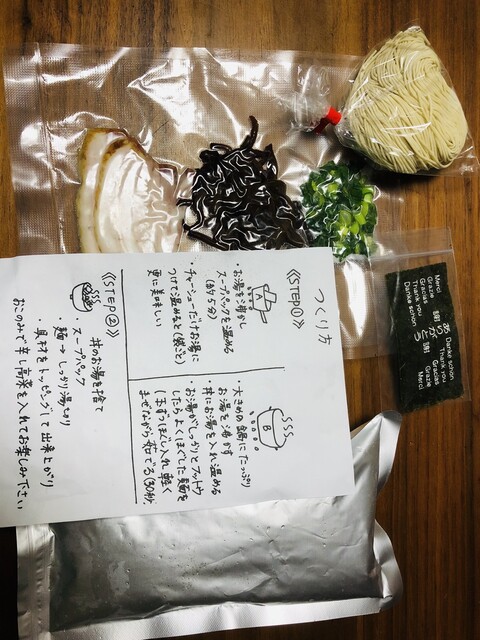 つくり方
《STEP①》
A
・お湯を沸かし
スープパックを温める
(約5分)
・チャーシューだけお湯に
つけて温めると(袋ごと)
更に美味しい
B
・大きめの鍋にたっぷり
お湯を沸かす
丼にお湯を入れ温める
・お湯がしっかりとフットウ
したらよくほぐした麺を
1玉ずつほぐし入れ 軽く
まぜながら茹でる(30秒)
《STEP②》
丼のお湯を捨て
スープパック
麺→しっかり湯きり
・具材をトッピングして出来上がり
おこのみで辛し高菜を入れてお楽しみ下さい
Merci
Grazie
Gracias
Thank you
Danke schön
謝謝
ありがとう
Danke schön
Thank you
Gracias
Grazie
Merci